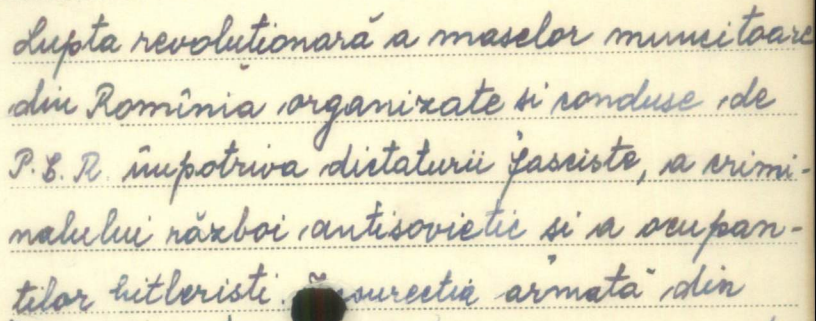 Lupta revoluționară a maselor muncitoare
din Romînia organizate si conduse de
P.C.R. împotriva dictaturii fasciste, a crimi-
nalului război antisovietic si a ocupan-
tilor hitleristi. Insurectia armată din